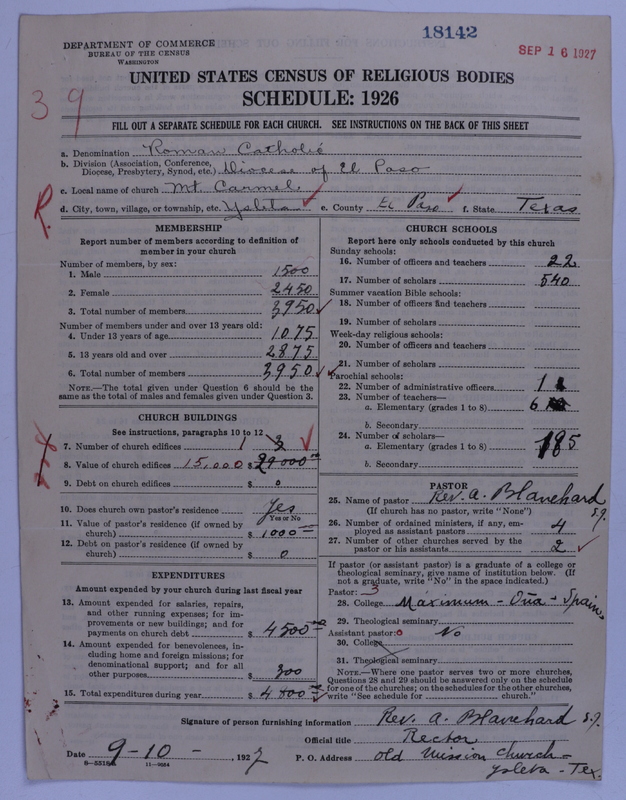 18142
SEP 16 1927
DEPARTMENT OF COMMERCE
BUREAU OF THE CENSUS
WASHINGTON
39
UNITED STATES CENSUS OF RELIGIOUS BODIES
SCHEDULE: 1926
FILL OUT A SEPARATE SCHEDULE FOR EACH CHURCH. SEE INSTRUCTIONS ON THE BACK OF THIS SHEET
a. Denomination Roman Catholic
b. Division (Association, Conference,
Diocese, Presbytery, Synod, etc.) Diocese of El Paso
c. Local name of church Mt Carmel
R.
d. City, town, village, or township, etc. Ysleta e. County El Paso f. State Texas
MEMBERSHIP
Report number of members according to definition of
member in your church
Number of members, by sex:
1. Male 1500
2. Female 2450
3. Total number of members 3950
Number of members under and over 13 years old:
4. Under 13 years of age 1075
5. 13 years old and over 2875
6. Total number of members 3950
NOTE.—The total given under Question 6 should be the
same as the total of males and females given under Question 3.
CHURCH BUILDINGS
See instructions, paragraphs 10 to 12
7. Number of church edifices 1
8. Value of church edifices 15,000 $
9. Debt on church edifices $ 0
10. Does church own pastor's residence Yes
Yes or No
11. Value of pastor's residence (if owned by
church) $ 1000
12. Debt on pastor's residence (if owned by
church) $ 0
EXPENDITURES
Amount expended by your church during last fiscal year
13. Amount expended for salaries, repairs,
and other running expenses; for im-
provements or new buildings; and for
payments on church debt $ 4500
14. Amount expended for benevolences, in-
cluding home and foreign missions; for
denominational support; and for all
other purposes $ 300
15. Total expenditures during year $ 4.800
CHURCH SCHOOLS
Report here only schools conducted by this church
Sunday schools:
16. Number of officers and teachers 22
17. Number of scholars 540
Summer vacation Bible schools:
18. Number of officers and teachers
19. Number of scholars
Week-day religious schools:
20. Number of officers and teachers
21. Number of scholars
Parochial schools:
22. Number of administrative officers 1
23. Number of teachers—
a. Elementary (grades 1 to 8) 6
b. Secondary
24. Number of scholars—
a. Elementary (grades 1 to 8) 185
b. Secondary
PASTOR
25. Name of pastor Rev. A. Blanchard S.J.
(If church has no pastor, write "None")
26. Number of ordained ministers, if any, em-
ployed as assistant pastors 4
27. Number of other churches served by the
pastor or his assistants 2
If pastor (or assistant pastor) is a graduate of a college or
theological seminary, give name of institution below. (If
not a graduate, write "No" in the space indicated.)
Pastor: 3
28. College Maximum - Oña - Spain
29. Theological seminary
Assistant pastor: 0 No
30. College
31. Theological seminary
NOTE.—Where one pastor serves two or more churches,
Questions 28 and 29 should be answered only on the schedule
for one of the churches; on the schedules for the other churches,
write "See schedule for church."
Signature of person furnishing information Rev. A. Blanchard S.J.
Official title Rector
Date 9-10-, 1927 P. O. Address Old Mission Church-
8—5518a 11—9024 Ysleta - Tex.